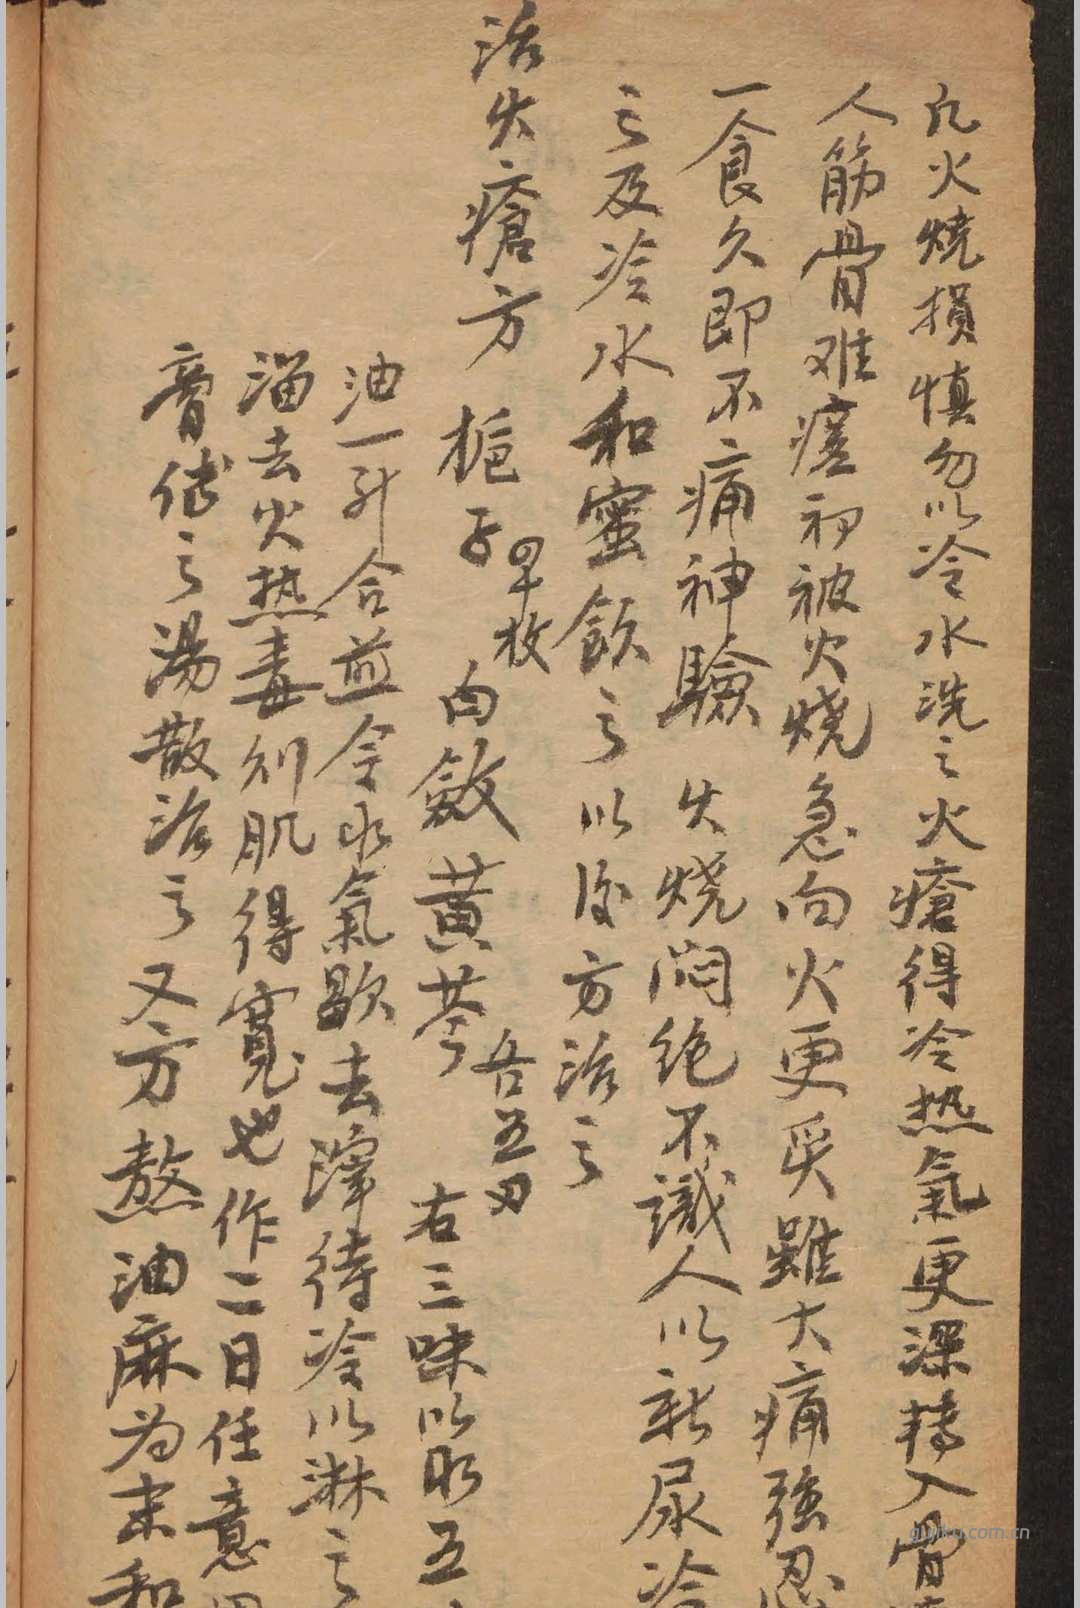 凡火燒損慎勿以冷水洗之火瘡得冷热氣更深轉入骨
人筋骨难瘥初被火烧急向火更炙雖大痛强忍
一食久即不痛神驗 火烧悶绝不識人以新尿冷
之及冷水和蜜飲之以後方治之
治火瘡方 梔子四十枚 白斂 黄芩各五刄 右三味以水五
油一升合煎令水氣歇去滓待冷以淋之
溜去火热毒则肌得寬也作二日任意用
膏傅之湯散治之又方熬油麻为末和
gujiku.com.cn